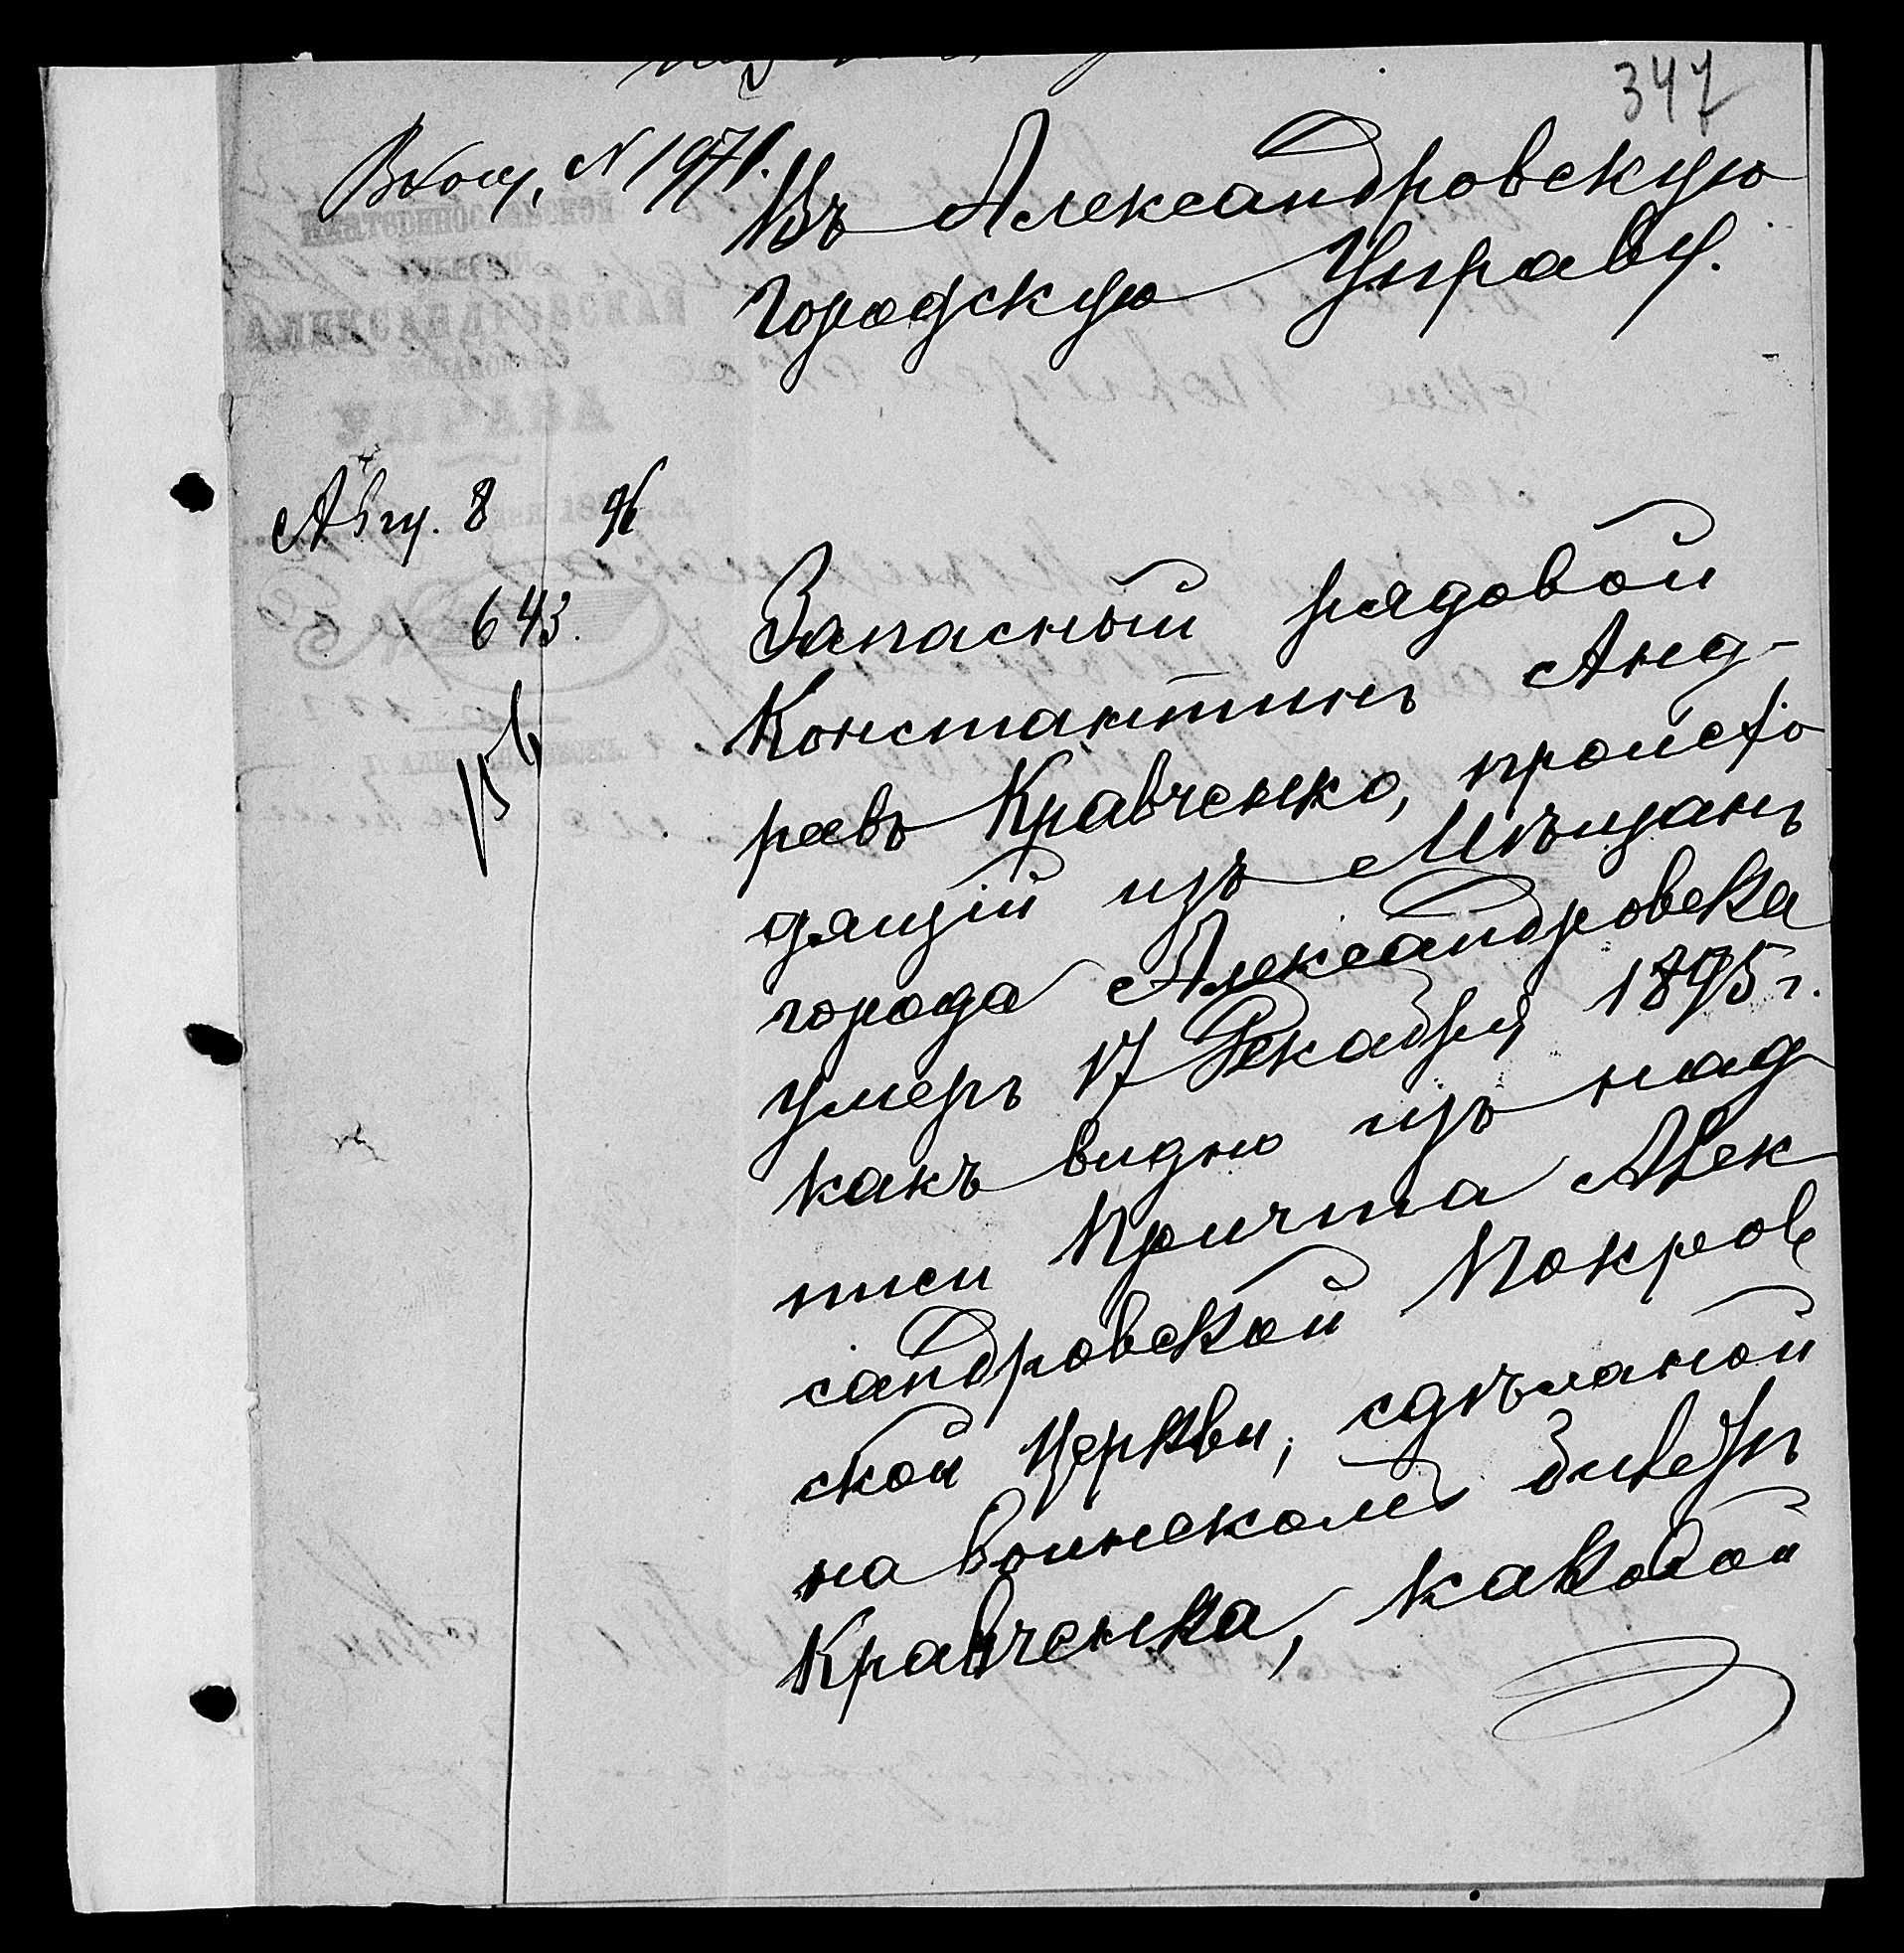 347
Входщ. N 1971.
Въ Александровскую
городскую Управу.
ЕКАТЕРИНОСЛАВСКОЙ
АЛЕКСАНДРОВСКАЯ
УПРАВА
Авгу. 8 96
643.
Запасный рядовой
Константинъ Анд-
реевъ Кравченко, происхо
дящій изъ Мѣщанъ
города Александровска
умеръ 17 Декабря 1895 г.
какъ видно изъ над
писи Причта Алек
сандровской Покров
ской Церкви, сдѣланой
на воинскомъ билетѣ
Кравченка, каковой